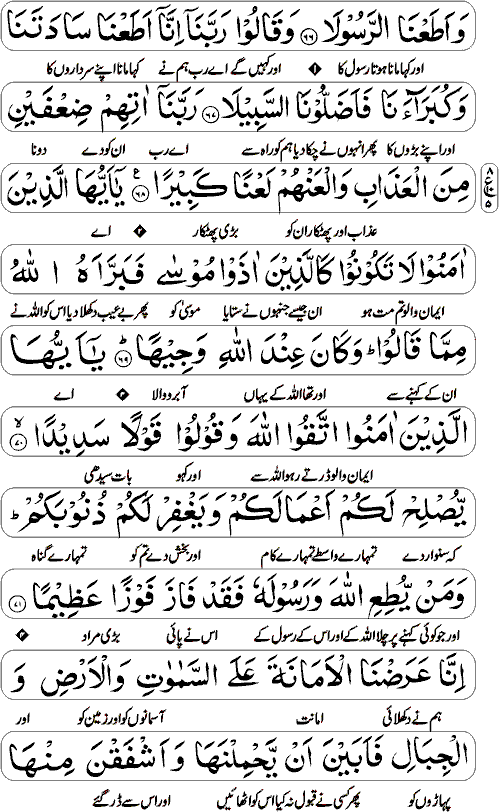 وَاَطَعْنَا الرَّسُوْلَا ﴿۶۶﴾ وَقَالُوْا رَبَّنَاۤ اِنَّاۤ اَطَعْنَا سَادَتَنَا
اور کہا مانا ہوتا رسول کا ۱ اور کہیں گے اے رب ہم نے کہا مانا اپنے سرداروں کا
وَكُبَرَآءَنَا فَاَضَلُّوْنَا السَّبِيْلَا ﴿۶۷﴾ رَبَّنَاۤ اٰتِهِمْ ضِعْفَيْنِ
اور اپنے بڑوں کا پھر انہوں نے چکا دیا ہم کو راہ سے اے رب ان کو دے دونا
مِنَ الْعَذَابِ وَالْعَنْهُمْ لَعْنًا كَبِيْرًا ﴿۶۸﴾ يٰۤاَيُّهَا الَّذِيْنَ
عذاب اور پھٹکار ان کو بڑی پھٹکار ۲ اے
اٰمَنُوْا لَا تَكُوْنُوْا كَالَّذِيْنَ اٰذَوْا مُوْسٰى فَبَرَّاَهُ اللّٰهُ
ایمان والو تم مت ہو ان جیسے جنہوں نے ستایا موسیٰ کو پھر بے عیب دکھلا دیا اس کو اللہ نے
مِمَّا قَالُوْا ؕ وَكَانَ عِنْدَ اللّٰهِ وَجِيْهًا ﴿۶۹﴾ يٰۤاَيُّهَا
ان کے کہنے سے اور تھا اللہ کے یہاں آبرو والا ۳ اے
الَّذِيْنَ اٰمَنُوا اتَّقُوا اللّٰهَ وَقُوْلُوْا قَوْلًا سَدِيْدًا ﴿۷۰﴾
ایمان والو ڈرتے رہو اللہ سے اور کہو بات سیدھی
يُّصْلِحْ لَكُمْ اَعْمَالَكُمْ وَيَغْفِرْ لَكُمْ ذُنُوْبَكُمْ ؕ
کہ سنوار دے تمہارے واسطے تمہارے کام اور بخش دے تم کو تمہارے گناہ
وَمَنْ يُّطِعِ اللّٰهَ وَرَسُوْلَهٗ فَقَدْ فَازَ فَوْزًا عَظِيْمًا ﴿۷۱﴾
اور جو کوئی کہنے پر چلا اللہ کے اور اس کے رسول کے اس نے پائی بڑی مراد ۴
اِنَّا عَرَضْنَا الْاَمَانَةَ عَلَى السَّمٰوٰتِ وَالْاَرْضِ وَ
ہم نے دکھلائی امانت آسمانوں کو اور زمین کو اور
الْجِبَالِ فَاَبَيْنَ اَنْ يَّحْمِلْنَهَا وَاَشْفَقْنَ مِنْهَا
پہاڑوں کو پھر کسی نے قبول نہ کیا اس کو اٹھائیں اور اس سے ڈر گئے